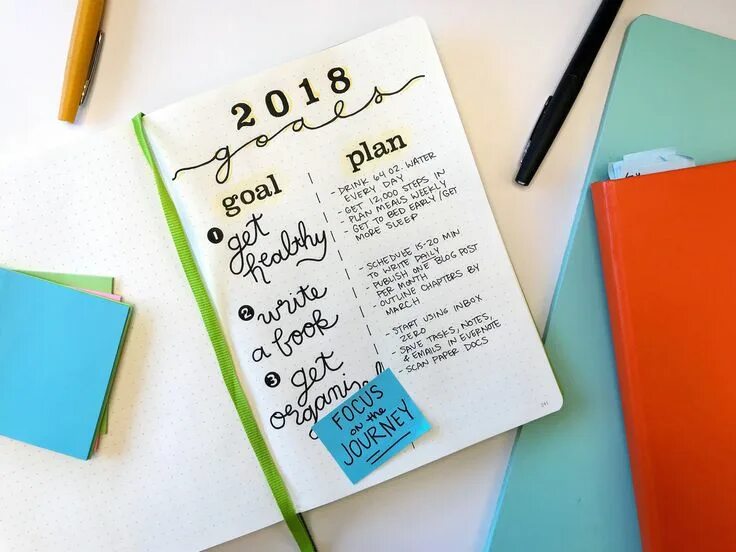 2018
goals
goal
plan
1 get
healthy
- DRINK 64 OZ. WATER
EVERY DAY
- GET 12,000 STEPS IN
- PLAN MEALS WEEKLY
- GET TO BED EARLY/GET
MORE SLEEP
2 write
a book
- SCHEDULE 15-20 MIN
TO WRITE DAILY
- PUBLISH ONE BLOG POST
PER MONTH
- OUTLINE CHAPTERS BY
MARCH
3 get
- START USING INBOX
ZERO
- SAVE TASKS, NOTES,
& EMAILS IN EVERNOTE
- SCAN PAPER DOCS
FOCUS
on the
JOURNEY